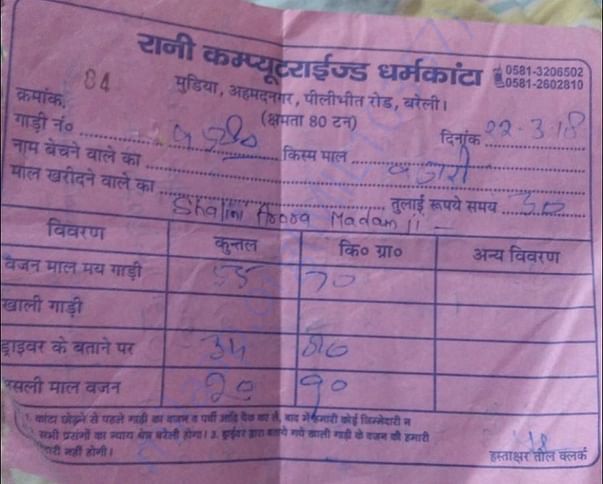 रानी कम्प्यूटराईज्ड धर्मकांटा 0581-3206502
0581-2602810
मुडिया, अहमदनगर, पीलीभीत रोड, बरेली।
क्रमांक. 84
(क्षमता 80 टन)
गाड़ी नं० दिनांक 22-3-18
नाम बेचने वाले का किस्म माल बजरी
माल खरीदने वाले का तुलाई रूपये समय 30
Shalini Arora Madam Ji
विवरण कुन्तल कि० ग्रा० अन्य विवरण
वजन माल मय गाड़ी 55 70
खाली गाड़ी
ड्राइवर के बताने पर 34 80
असली माल वजन 20 90
1. कांटा छोड़ने से पहले गाड़ी का वजन व पर्ची आदि चैक कर लें, बाद में हमारी कोई जिम्मेदारी न
सभी प्रसंगों का न्याय क्षेत्र बरेली होगा। 3. ड्राईवर द्वारा बताये गये खाली गाड़ी के वजन की हमारी
दारी नहीं होगी।
हस्ताक्षर तौल क्लर्क